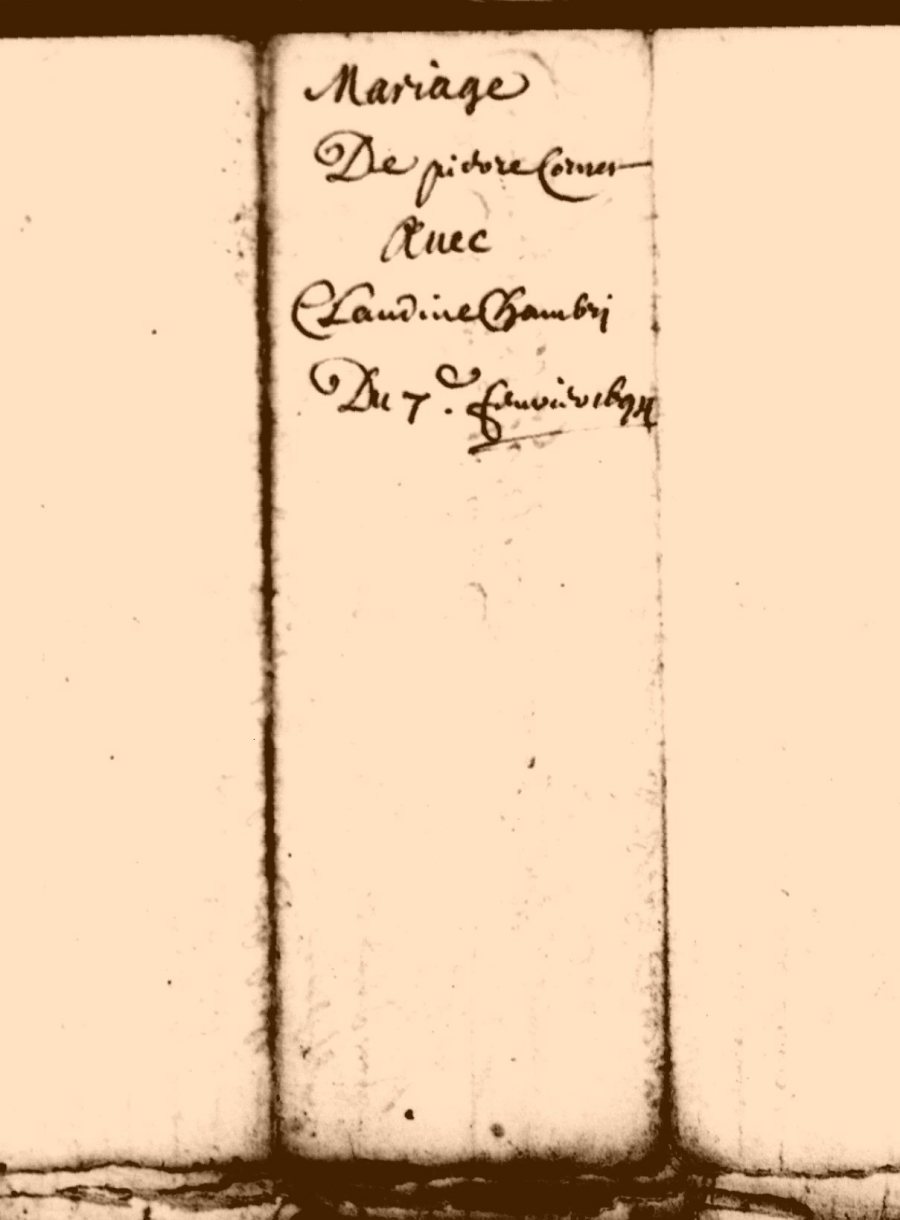 Mariage
De pierre Cornet
Auec
Claudine Chambri
Du 7.e Januier 1694